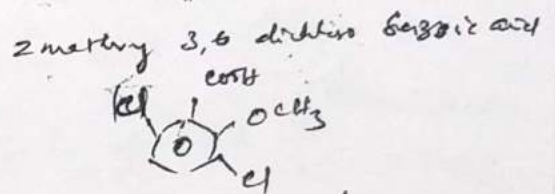 2 methoxy 3,6 dichloro benzoic acid
COOH
Cl
OCH3
Cl